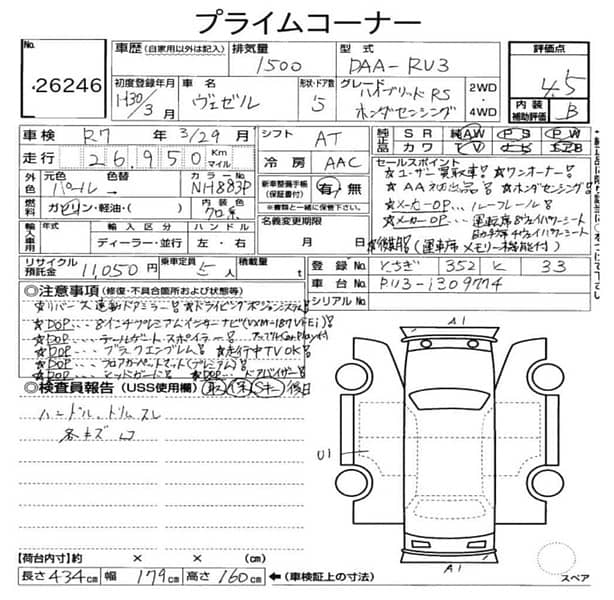 プライムコーナー
No. 26246
車歴 (自家用以外は記入) 排気量 1500 型式 DAA-RU3 評価点 4.5
初度登録年月 H30/3月 車名 ヴェゼル 形状・ドア数 5 グレード ハイブリッドRS ホンダセンシング 2WD・4WD 内装補助評価 B
車検 R7年3/29月 シフト AT 純正品 SR 純AW PS PW
走行 26,950 Km マイル 冷房 AAC カワ TV
外色 元色 パール 色替 カラーNo. NH883P 新車整備手帳(保証書付) 有・無 ※書類と一緒に保管下さい。
セールスポイント
★ユーザー買取車! ★ワンオーナー!
★AA初出品! ★ホンダセンシング!
★メーカーOP… ルーフレール!
★メーカーOP… 運転席8ウェイパワーシート
助手席4ウェイパワーシート
(運転席メモリー機能付)
燃料 ガソリン・軽油・( ) 内装色 クロ系 名義変更期限 月 日
輸入車用 年式 輸入区分 ディーラー・並行 ハンドル 左・右
リサイクル預託金 11,050円 乗車定員 5人 積載量 t 登録 とちぎ 352 と 33
車台No. RU3-1309774
シリアルNo.
◎注意事項 (修復・不具合箇所および状態等)
★リバース連動ドアミラー! ★ドライビングポジションシステム!
★DOP…8インチプレミアムインターナビ(VXM-187VFEi)!
★DOP…テールゲートスポイラー! アップルCarPlay付
★DOP…ブラックエンブレム! ★走行中TVOK!
★DOP…フロアカーペットマット(プレミアム)!
★DOP…ドアバイザー!
◎検査員報告 (USS使用欄) 取 保 Sキー 後日
ハンドル、ドリムスレ
各キズ
A1
U1
A1
【荷台内寸】約 × × (cm)
長さ 434cm 幅 179cm 高さ 160cm ←(車検証上の寸法)
スペア